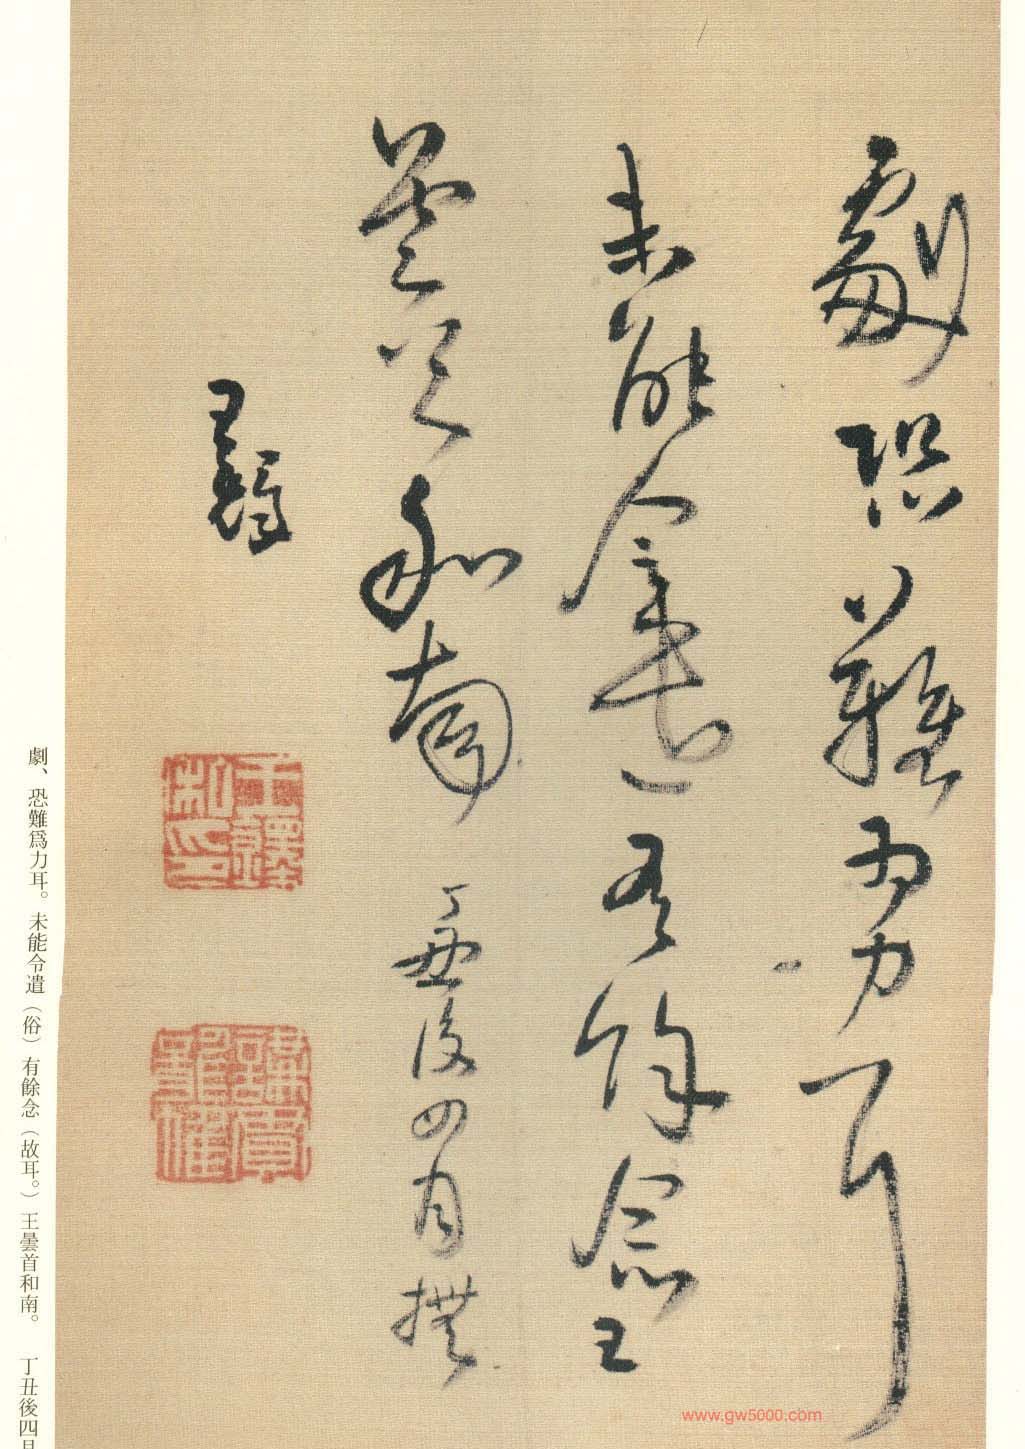 劇恐難為力耳
未能令遣有餘念王
曇首和南 丁丑後四月撫
王鐸
王鐸私印
劇、恐難爲力耳。未能令遣（俗）有餘念（故耳。）王曇首和南。 丁丑後四月
www.gw5000.com